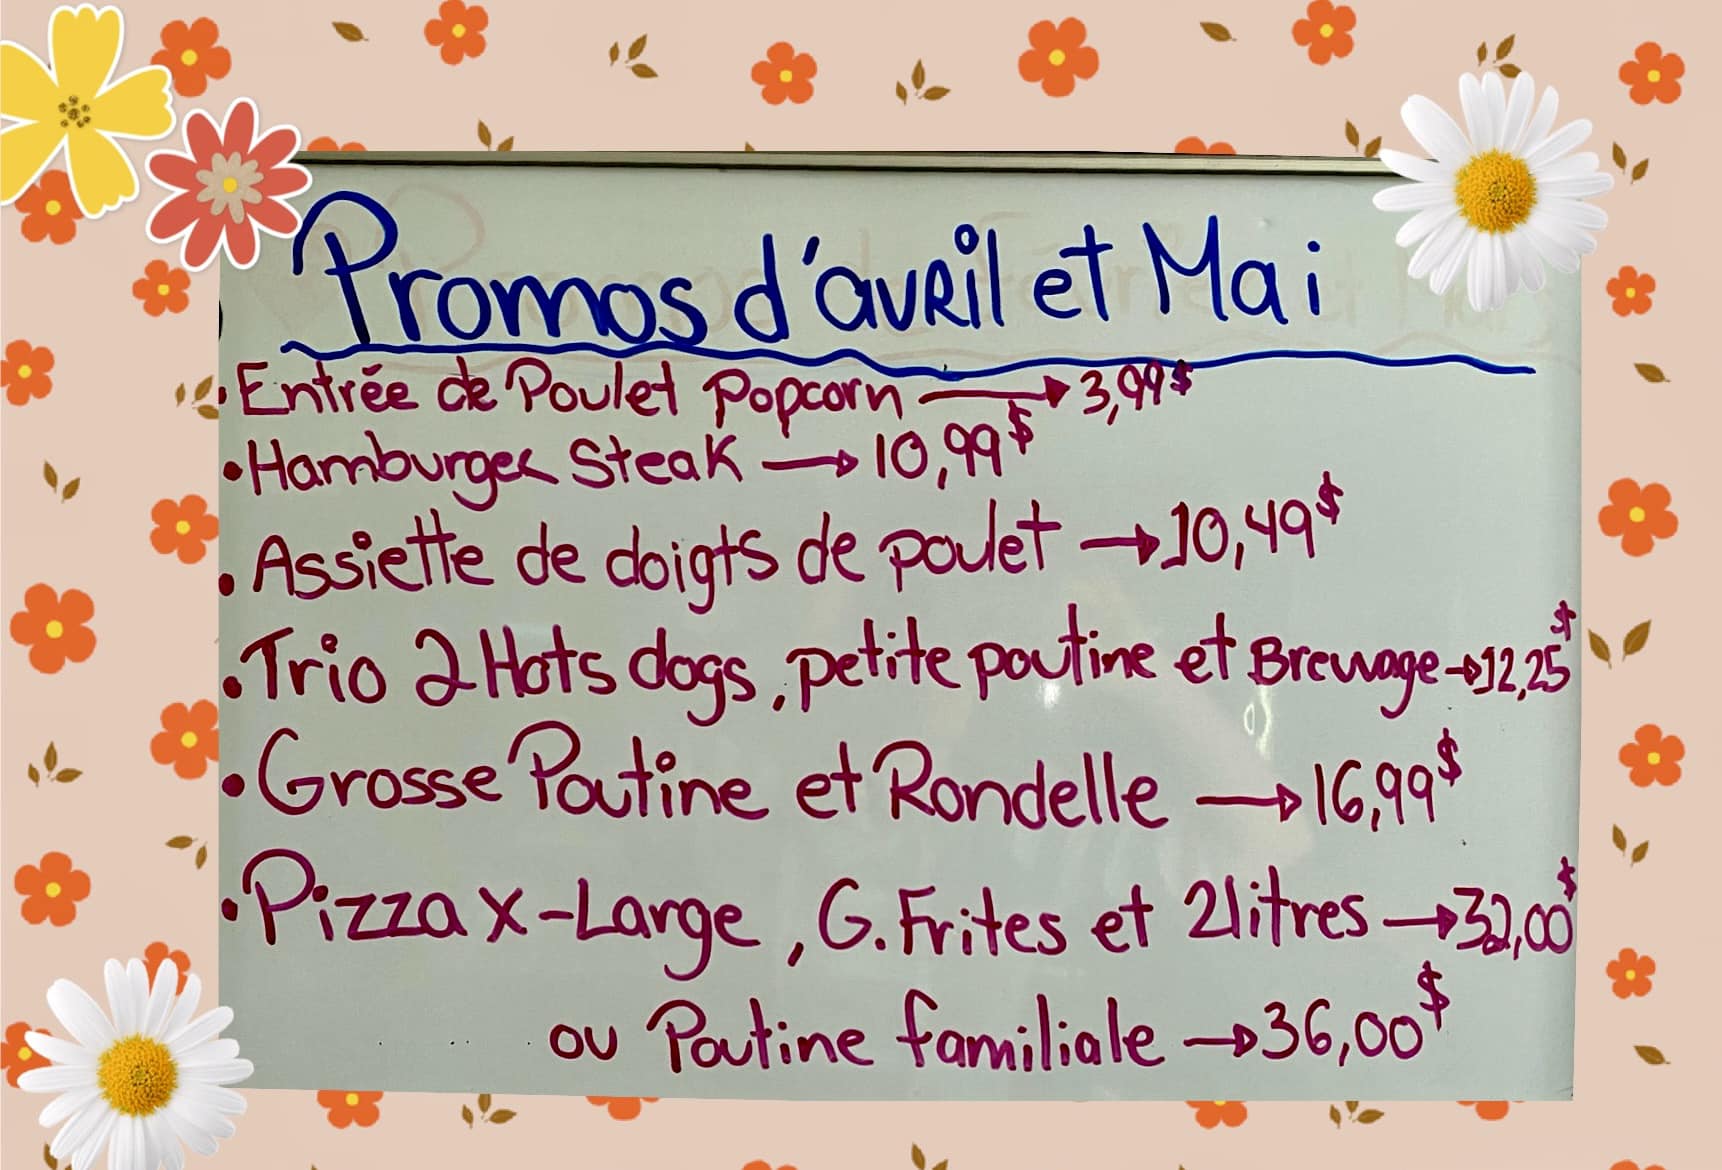 Promos d'avril et Mai
• Entrée de Poulet Popcorn → 3,99$
• Hamburger Steak → 10,99$
• Assiette de doigts de poulet → 10,49$
• Trio 2 Hots dogs, petite poutine et Breuvage → 12,25$
• Grosse Poutine et Rondelle → 16,99$
• Pizza X-Large, G. Frites et 2 litres → 32,00$
ou Poutine familiale → 36,00$